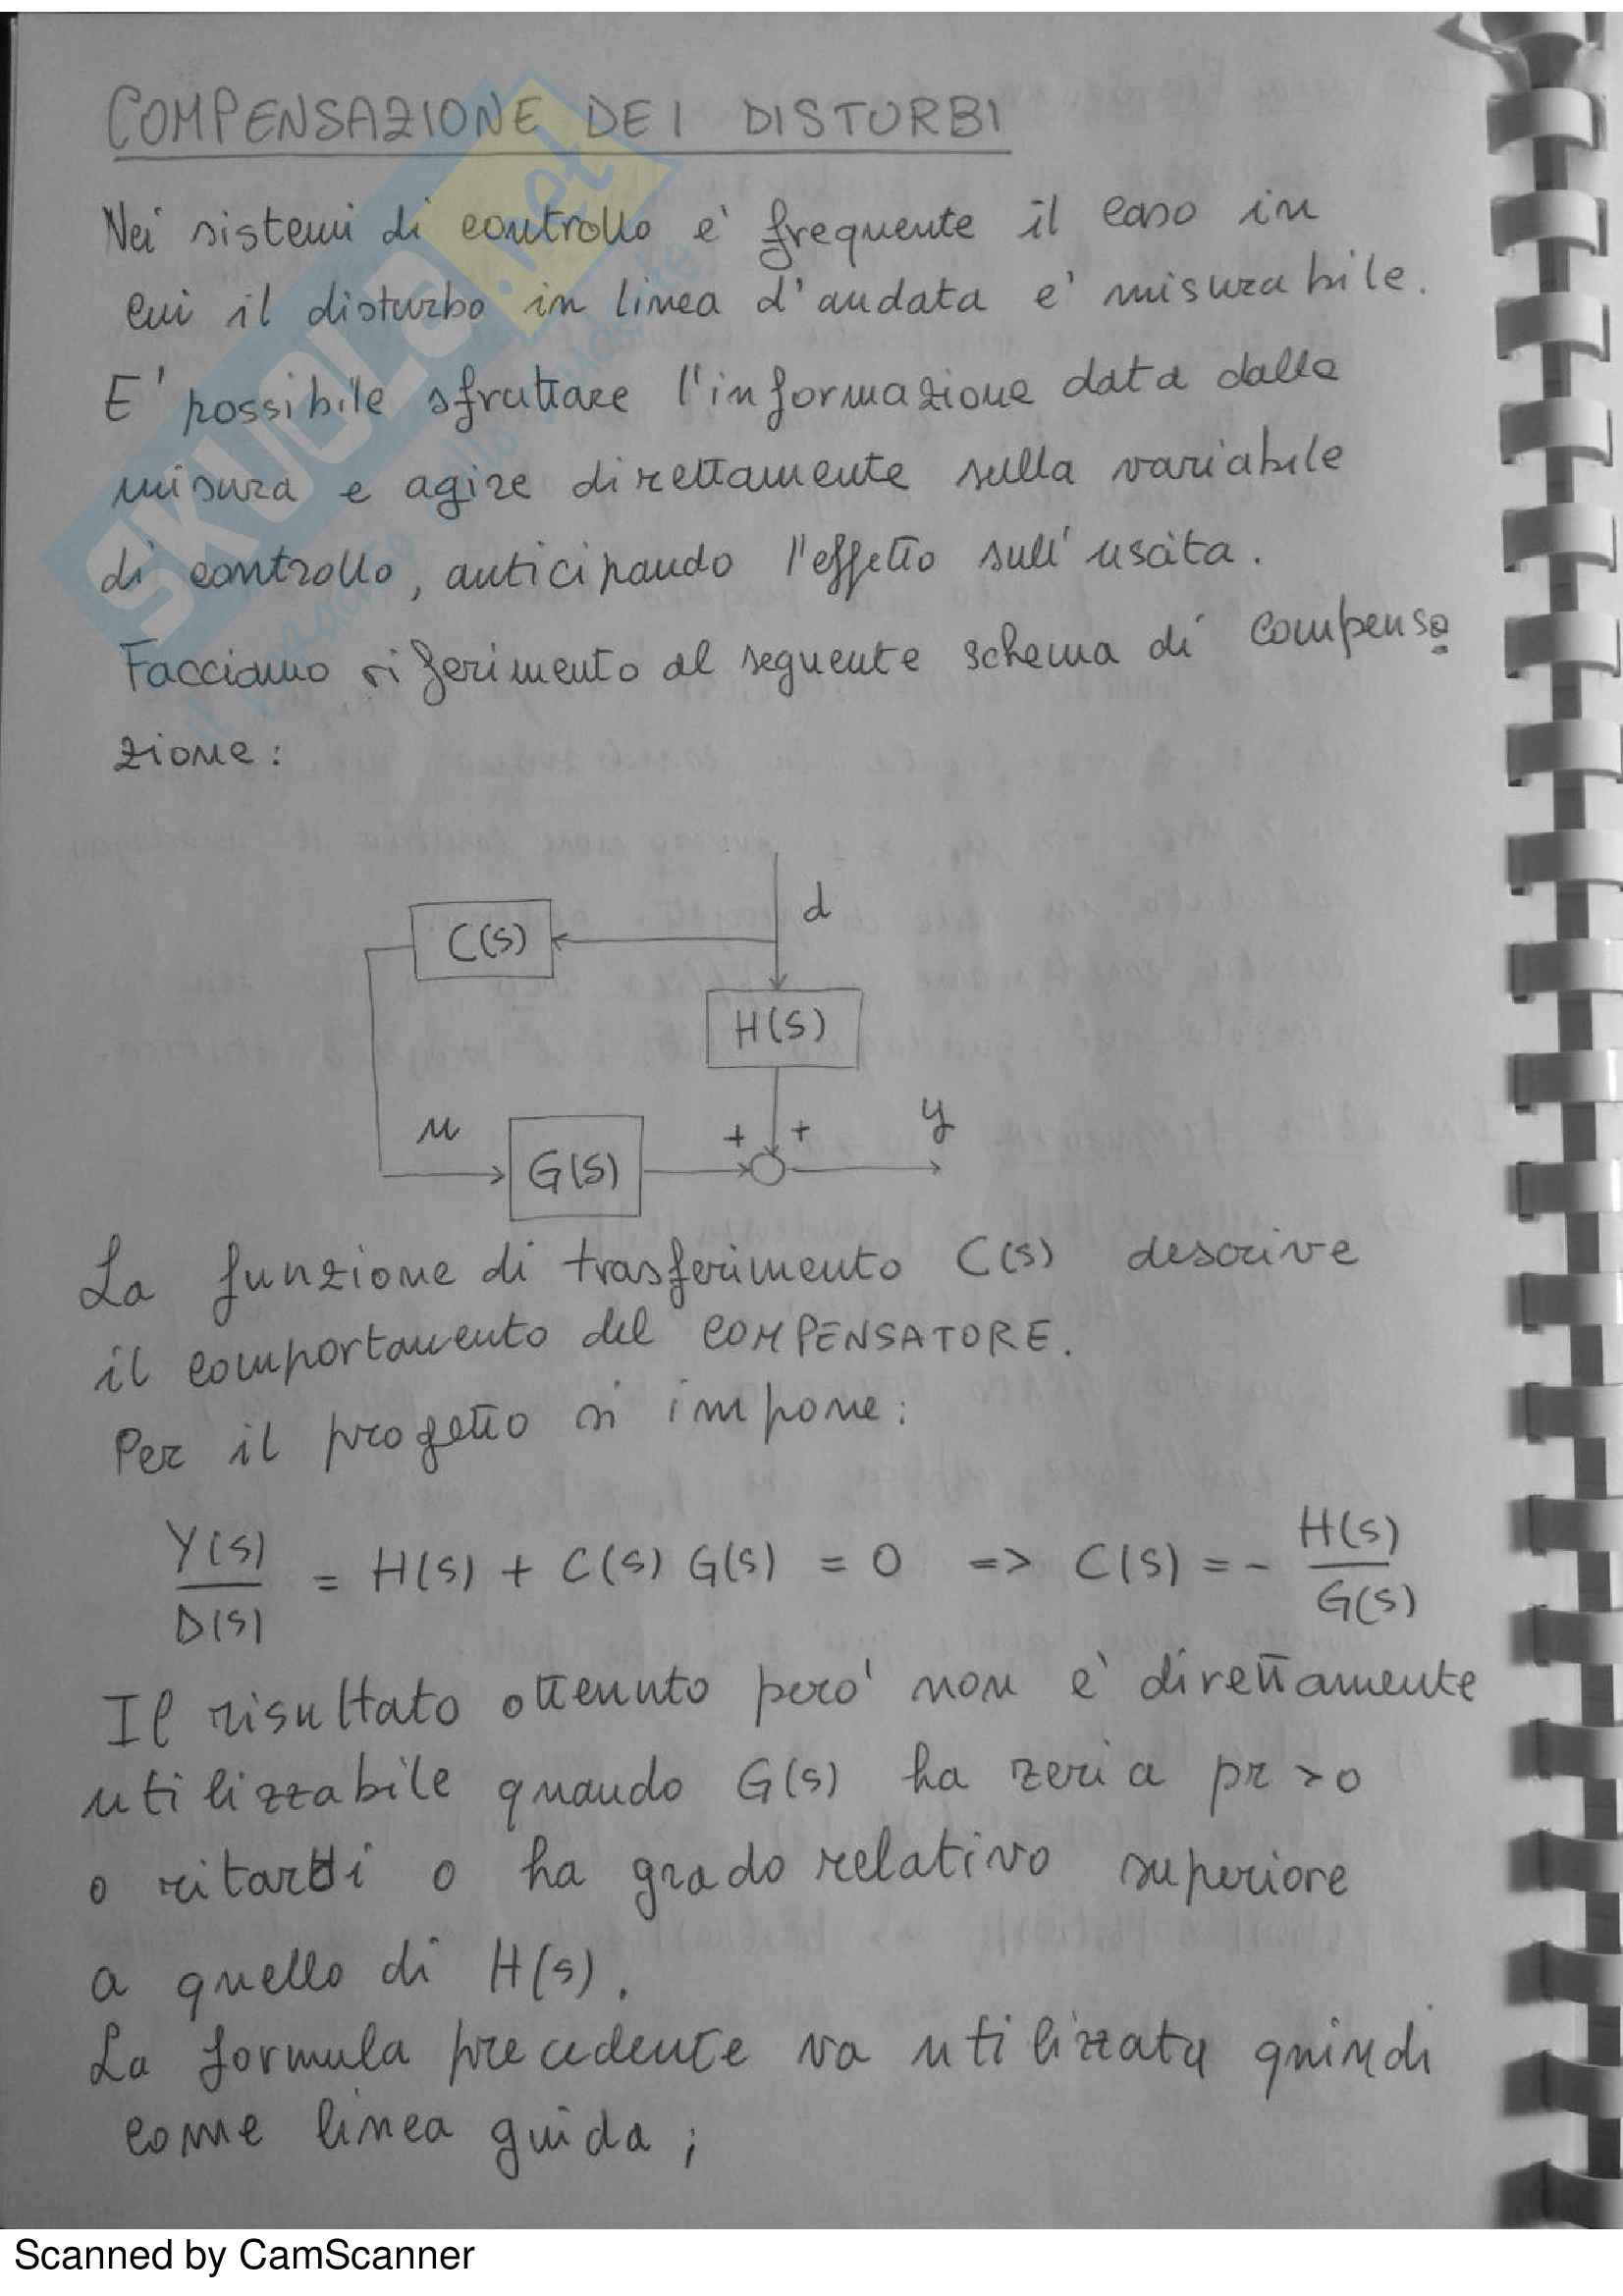 COMPENSAZIONE DEI DISTURBI
Nei sistemi di controllo e' frequente il caso in
cui il disturbo in linea d'andata e' misurabile.
E' possibile sfruttare l'informazione data dalla
misura e agire direttamente sulla variabile
di controllo, anticipando l'effetto sull'uscita.
Facciamo riferimento al seguente schema di compensa
zione:
d
C(s)
H(s)
u
+ +
y
G(s)
La funzione di trasferimento C(s) descrive
il comportamento del COMPENSATORE.
Per il progetto si impone:
Y(s)/D(s) = H(s) + C(s) G(s) = 0 => C(s) = - H(s)/G(s)
Il risultato ottenuto pero' non e' direttamente
utilizzabile quando G(s) ha zeri a pr > 0
o ritardi o ha grado relativo superiore
a quello di H(s).
La formula precedente va utilizzata quindi
come linea guida;
SKUOLA.net
Scanned by CamScanner